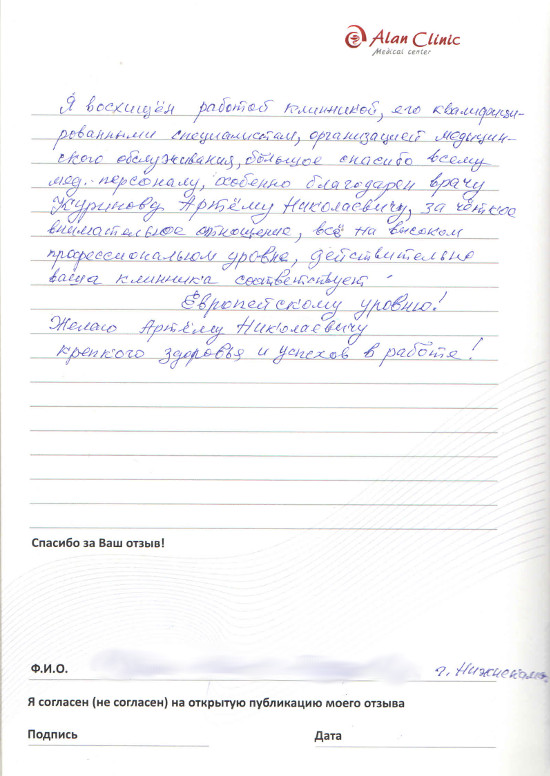 Alan Clinic
Medical center
Я восхищён работой клинникой, его квалифици-
рованными специалистам, организацией медицин-
ского обслуживания, большое спасибо всему
мед. персоналу, особенно благодарен врачу
Артёму Николаевичу, за чёткое
внимательное отношение, всё на высоком
профессиональном уровне, действительно
ваша клинника соответствует
Европейскому уровню!
Желаю Артёму Николаевичу
крепкого здоровья и успехов в работе!
Спасибо за Ваш отзыв!
Ф.И.О.
г.
Я согласен (не согласен) на открытую публикацию моего отзыва
Подпись
Дата